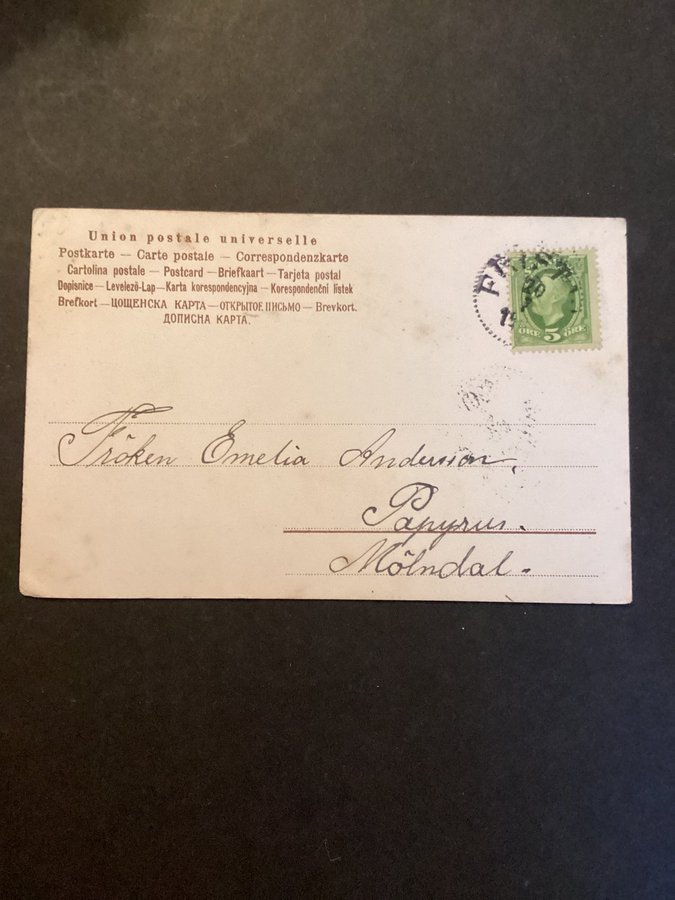 Union postale universelle
Postkarte — Carte postale — Correspondenzkarte
Cartolina postale — Postcard — Briefkaart — Tarjeta postal
Dopisnice — Levelező-Lap — Karta korespondencyjna — Korespondenční lístek
Brefkort — ЦОЩЕНСКА КАРТА — ОТКРЫТОЕ ПИСЬМО — Brevkort.
ДОПИСНА КАРТА.
ÖRE 5 ÖRE
Fröken Emelia Andersson,
Papyrus.
Mölndal -